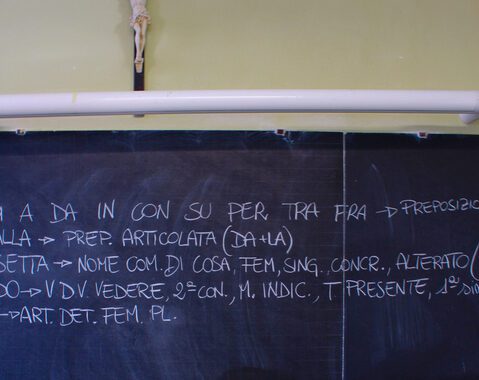 A DA IN CON SU PER TRA FRA → PREPOSIZIO
ALLA → PREP. ARTICOLATA (DA+LA)
SETTA → NOME COM. DI COSA, FEM, SING., CONCR., ALTERATO (
DO → V D.V. VEDERE, 2ª CON., M. INDIC., T PRESENTE, 1ª
→ ART. DET. FEM. PL.